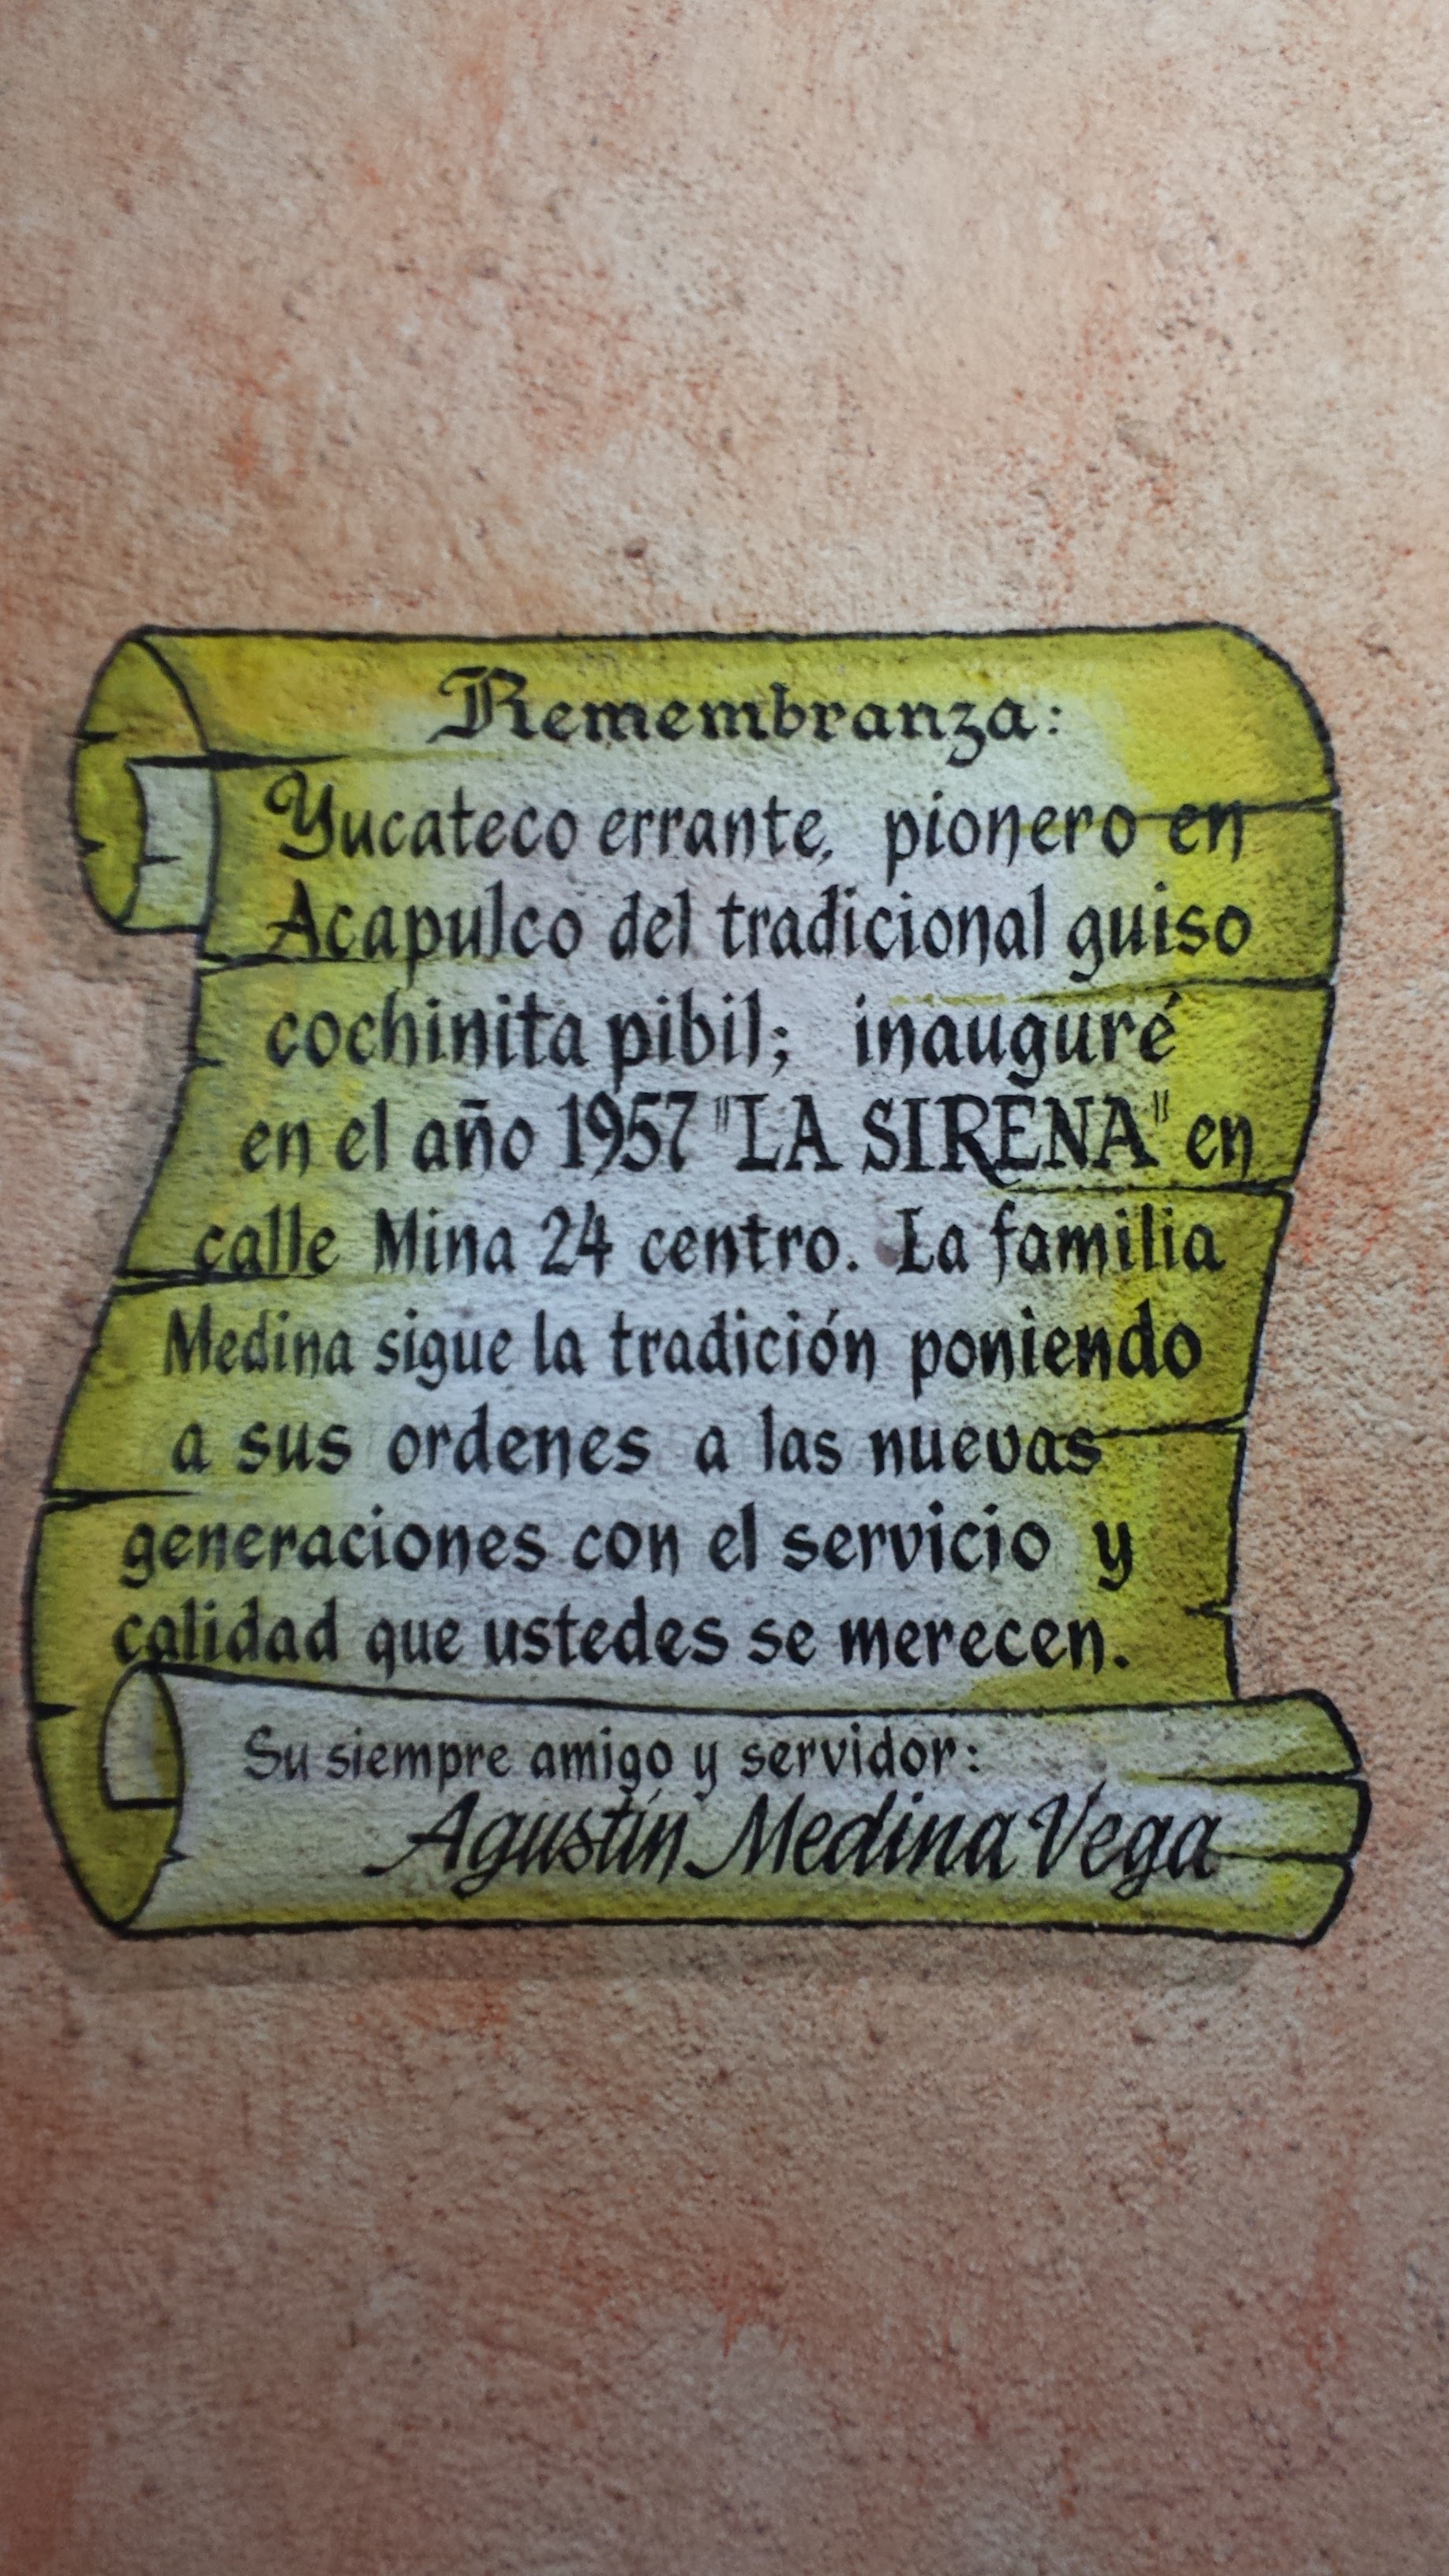 Remembranza:
Yucateco errante, pionero en
Acapulco del tradicional guiso
cochinita pibil; inauguré
en el año 1957 "LA SIRENA" en
calle Mina 24 centro. La familia
Medina sigue la tradición poniendo
a sus ordenes a las nuevas
generaciones con el servicio y
calidad que ustedes se merecen.
Su siempre amigo y servidor:
Agustín Medina Vega